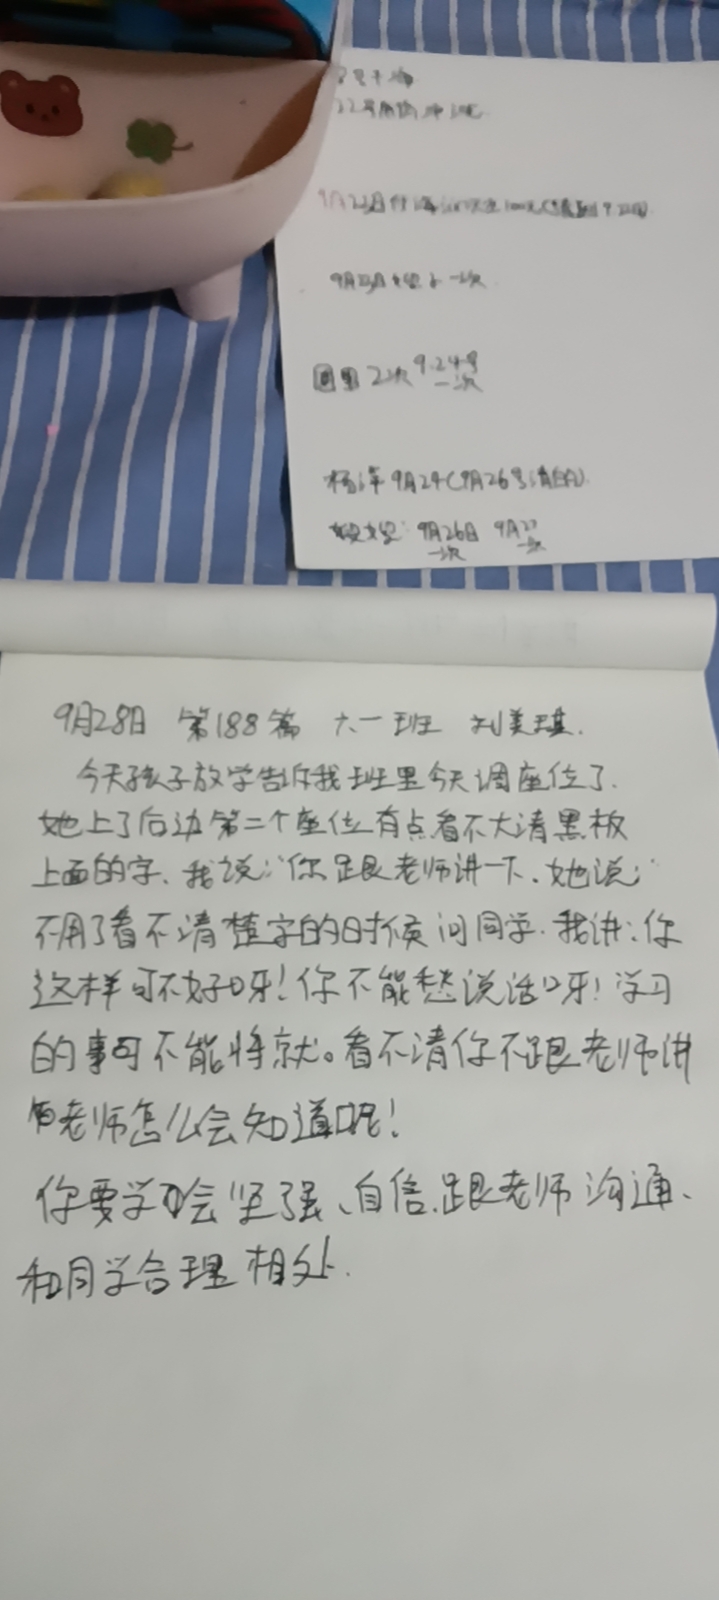 9月23日
一次
2次 9.24号
一次
杨洋 9月24(9月26号清白)
9月26日 9月27
一次 一次
9月28日 第188篇 六一班 刘美琪.
今天孩子放学告诉我班里今天调座位了.
她上了后边第二个座位有点看不大清黑板
上面的字、我说:“你跟老师讲一下、她说:
不用了看不清楚字的时候问同学.我讲:你
这样可不好呀!你不能愁说话呀!学习
的事可不能将就。看不清你不跟老师讲
老师怎么会知道呢!
你要学会坚强、自信、跟老师沟通、
和同学合理相处.